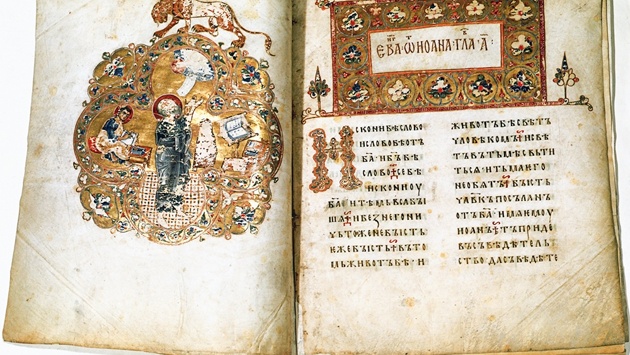 ЕВА Ѿ ИОАНА ГЛА А҃:
ИСКОНИ БѢ СЛОВО
И СЛОВО БѢ ОТЪ
Б҃А И Б҃Ъ БѢ
СЛОВО СЕ БѢ
ИСКОНИ ОУ
Б҃А И ТѢМЬ ВЬСА БЫ
ШѦ И БЕЗ НЕГО НИ
ЧЬТОЖЕ НЕ БЫСТЬ
ЕЖЕ БЫСТЬ ВЪ ТО
МЬ ЖИВОТЪ БѢ И
ЖИВОТЪ БѢ СВѢТЪ
ЧЛОВѢКОМЪ И СВѢ
ТЪ ВЪ ТЬМѢ СВЬТИ
ТЬСѦ И ТЬМА ѤГО
НЕ ОБѦТЪ БЫСТЬ
ЧЛ҃ВКЪ ПОСЪЛАНЪ
ОТЪ Б҃А ИМѦ ѤМОУ
ИОАНЪ ТЪ ПРИДЕ
ВЪ СЪВѢДѢТЕЛЬ
СТВО ДА СЪВѢДѢТЕ